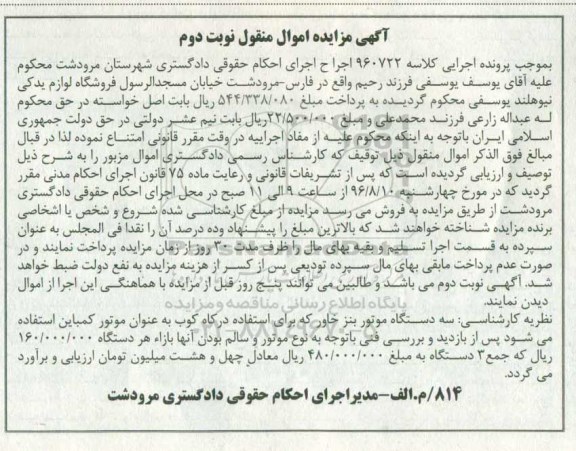 آگهی مزایده اموال منقول نوبت دوم
بموجب پرونده اجرایی کلاسه ۹۶۰۷۲۲ اجرا ح اجرای احکام حقوقی دادگستری شهرستان مرودشت محکوم
علیه آقای یوسف یوسفی فرزند رحیم واقع در فارس-مرودشت خیابان مسجدالرسول فروشگاه لوازم یدکی
نیوهلند یوسفی محکوم گردیده به پرداخت مبلغ ۵۴۴/۳۳۸/۰۸۰ ریال بابت اصل خواسته در حق محکوم
له عبداله زارعی فرزند محمدعلی و مبلغ ۲۲/۵۰۰/۰۰۰ریال بابت نیم عشر دولتی در حق دولت جمهوری
اسلامی ایران باتوجه به اینکه محکوم علیه از مفاد اجراییه در وقت مقرر قانونی امتناع نموده لذا در قبال
مبالغ فوق الذکر اموال منقول ذیل توقیف که کارشناس رسمی دادگستری اموال مزبور را به شرح ذیل
توصیف و ارزیابی گردیده است که پس از تشریفات قانونی و رعایت ماده ۷۵ قانون اجرای احکام مدنی مقرر
گردید که در مورخ چهارشنبه ۹۶/۸/۱۰ از ساعت ۹ الی ۱۱ صبح در محل اجرای احکام حقوقی دادگستری
مرودشت از طریق مزایده به فروش می رسد مزایده از مبلغ کارشناسی شده شروع و شخص یا اشخاصی
برنده مزایده شناخته خواهند شد که بالاترین مبلغ را پیشنهاد وده درصد آن را نقدا فی المجلس به عنوان
سپرده به قسمت اجرا تسلیم و بقیه بهای مال را ظرف مدت ۳۰ روز از زمان مزایده پرداخت نمایند و در
صورت عدم پرداخت مابقی بهای مال سپرده تودیعی پس از کسر از هزینه مزایده به نفع دولت ضبط خواهد
شد. آگهی نوبت دوم می باشد و طالبین می توانند پنج روز قبل از مزایده با هماهنگی این اجرا از اموال
دیدن نمایند.
نظریه کارشناسی: سه دستگاه موتور بنز خاور که برای استفاده درکاه کوب به عنوان موتور کمباین استفاده
می شود پس از بازدید و بررسی فنی باتوجه به نوع موتور و سالم بودن آنها بازاء هر دستگاه ۱۶۰/۰۰۰/۰۰۰
ریال که جمع۳ دستگاه به مبلغ ۴۸۰/۰۰۰/۰۰۰ ریال معادل چهل و هشت میلیون تومان ارزیابی و برآورد
می گردد.
۸۱۴/م.الف-مدیراجرای احکام حقوقی دادگستری مرودشت
پایگاه اطلاع رسانی مناقصه و مزایده